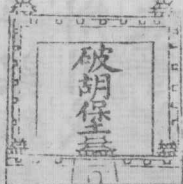 破胡堡